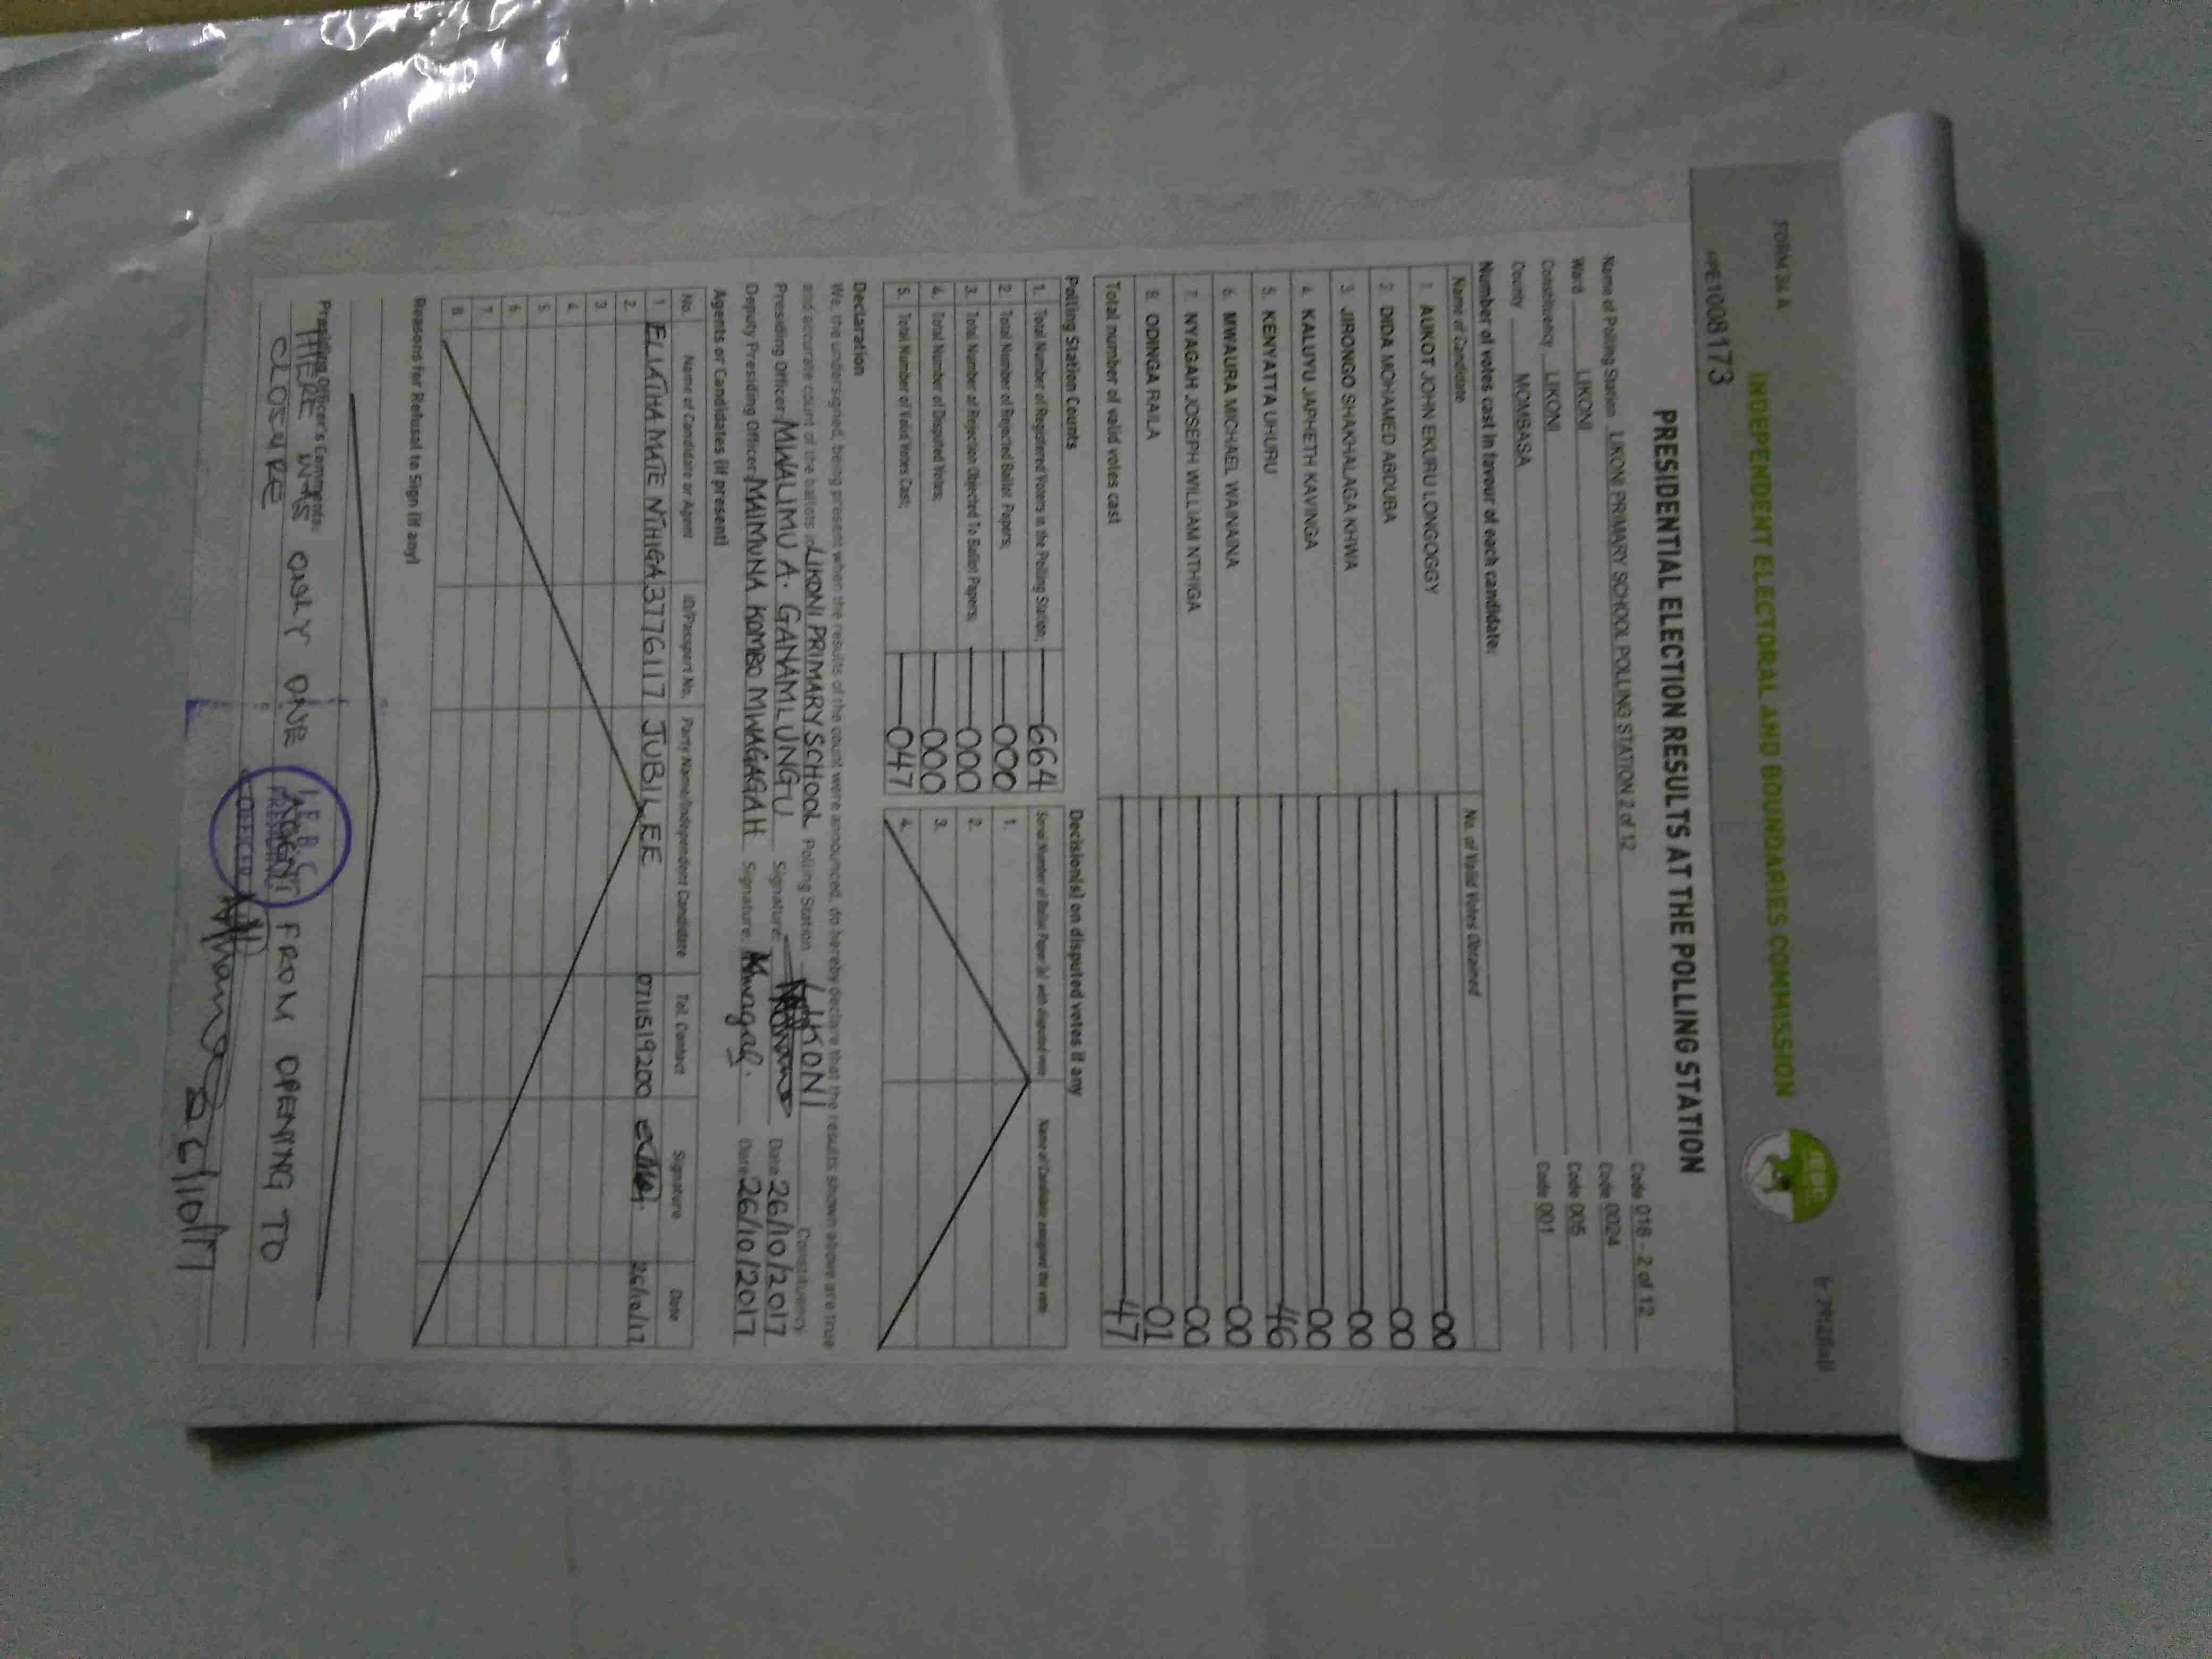 FORM 34 A
INDEPENDENT ELECTORAL AND BOUNDARIES COMMISSION
IEBC
#PE1008173
PRESIDENTIAL ELECTION RESULTS AT THE POLLING STATION
Name of Polling Station LIKONI PRIMARY SCHOOL POLLING STATION 2 of 12 Code 018 - 2 of 12
Ward LIKONI Code 0024
Constituency LIKONI Code 005
County MOMBASA Code 001
Number of votes cast in favour of each candidate:
Name of Candidate No. of Valid Votes Obtained
1. AUKOT JOHN EKURU LONGOGGY 00
2. DIDA MOHAMED ABDUBA 00
3. JIRONGO SHAKHALAGA KHWA 00
4. KALUYU JAPHETH KAVINGA 00
5. KENYATTA UHURU 46
6. MWAURA MICHAEL WAINAINA 00
7. NYAGAH JOSEPH WILLIAM NTHIGA 00
8. ODINGA RAILA 01
Total number of valid votes cast 47
Polling Station Counts
1. Total Number of Registered Voters in the Polling Station; 664
2. Total Number of Rejected Ballot Papers; 000
3. Total Number of Rejection Objected To Ballot Papers; 000
4. Total Number of Disputed Votes; 000
5. Total Number of Valid Votes Cast; 047
Decision(s) on disputed votes if any
Serial Number of Ballot Paper (s) with disputed vote Name of Candidate assigned the vote
1.
2.
3.
4.
Declaration
We, the undersigned, being present when the results of the count were announced, do hereby declare that the results shown above are true
and accurate count of the ballots in LIKONI PRIMARY SCHOOL Polling Station LIKONI Constituency
Presiding Officer: MWALIMU A. GANAMLUNGU Signature: Date: 26/10/2017
Deputy Presiding Officer: MAIMUNA KOMBO MWAGAGAH Signature: Kmwagah. Date: 26/10/2017
Agents or Candidates (if present)
No. Name of Candidate or Agent ID/Passport No. Party Name/Independent Candidate Tel. Contact Signature Date
1 ELIATHA MATE NTHIGA 37776117 JUBILEE 0711519200 26/10/17
2.
3.
4.
5.
6.
7.
8.
Reasons for Refusal to Sign (if any)
Presiding Officer's Comments:
THERE WAS ONLY ONE AGENT FROM OPENING TO
CLOSURE
I.E.B.C
PRESIDING
OFFICER
26/10/17